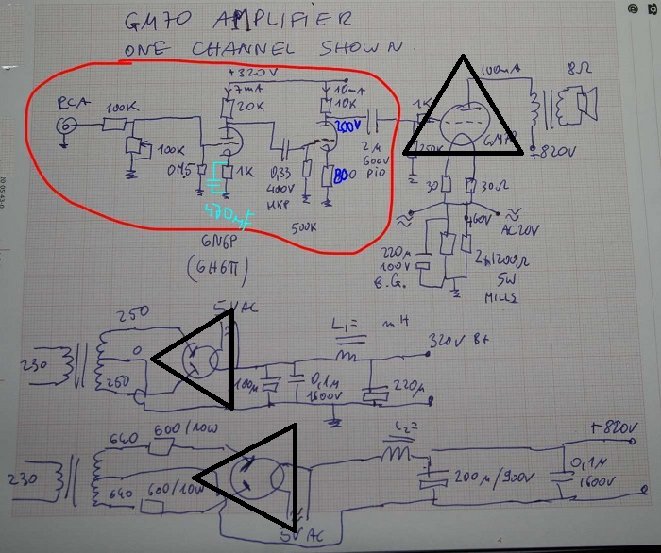 GM70 AMPLIFIER
ONE CHANNEL SHOWN
+320V
7mA
10mA
100mA
RCA
100K
20K
10K
1K
8Ω
250V
100K
GM70
2µ
600V
PIO
250K
820V
0,33
400V
MKP
1K
800
30
30Ω
470µf
500K
AC20V
6N6P
(6H6П)
220µ
100V
E.G.
2x1200Ω
5W
MILS
250
5V AC
L1= mH
320V B+
230
0
250
100µ
0,1µ
1600V
220µ
640
600/10W
L2=
+820V
230
640
600/10W
200µ/900V
0,1µ
1600V
5V AC